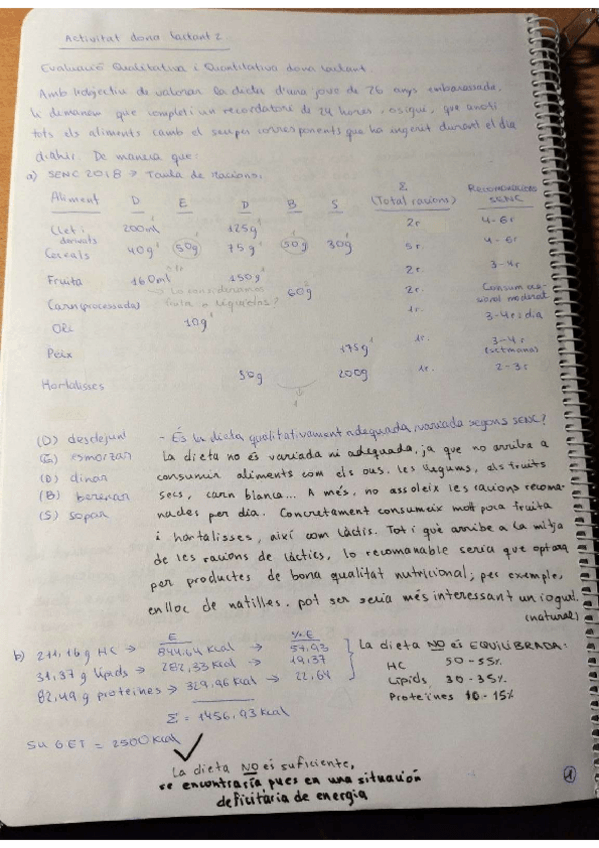 Activitat dona lactant 2
Evaluació Qualitativa i Quantitativa dona lactant.
Amb l'objectiu de valorar la dieta d'una jove de 26 anys embarassada,
li demanem que completi un recordatori de 24 hores, osigui, que anoti
tots els aliments (amb el seu pes corresponents que ha ingerit durant el dia
d'ahir. De manera que:
a) SENC 2018 → Taula de racions:
Aliment D E D B S Σ (Total racions) Recomanacions SENC
Llet i derivats 200ml 125g 2r 4-6r
Cereals 40g 50g 75g 50g 30g 5r. 4-6r
Fruita 160ml 150g 2r. 3-4r
→ Lo consideramos fruta o líquidos?
Carn (processada) 60g 2r. Consum ocasional moderat
Oli 10g 1r. 3-4r : dia
Peix 175g 1r. 3-4r (setmana)
Hortalisses 50g 200g 1r. 2-3r
1
(D) desdejuni
(E) esmorzar
(D) dinar
(B) berenar
(S) sopar
- És la dieta qualitativament adequada, variada segons SENC?
La dieta no és variada ni adequada, ja que no arriba a
consumir aliments com els ous, les llegums, els fruits
secs, carn blanca... A més, no assoleix les racions recoma-
nades per dia. Concretament consumeix molt poca fruita
i hortalisses, així com làctis. Tot i què arribe a la mitja
de les racions de làctics, lo recomanable seria que optara
per productes de bona qualitat nutricional; per exemple,
enlloc de natilles, pot ser seria més interessant un iogurt.
(natural)
E %E
b) 211,16g HC → 844,64 Kcal → 57,93
31,37g lípids → 282,33 Kcal → 19,37
82,49g proteïnes → 329,96 Kcal → 22,64
Σ = 1456,93 Kcal
La dieta NO és EQUILIBRADA:
HC 50-55%
Lípids 30-35%
Proteïnes 10-15%
Su GET = 2500 Kcal
La dieta NO és suficiente,
se encontraría pues en una situación
deficitaria de energía
1